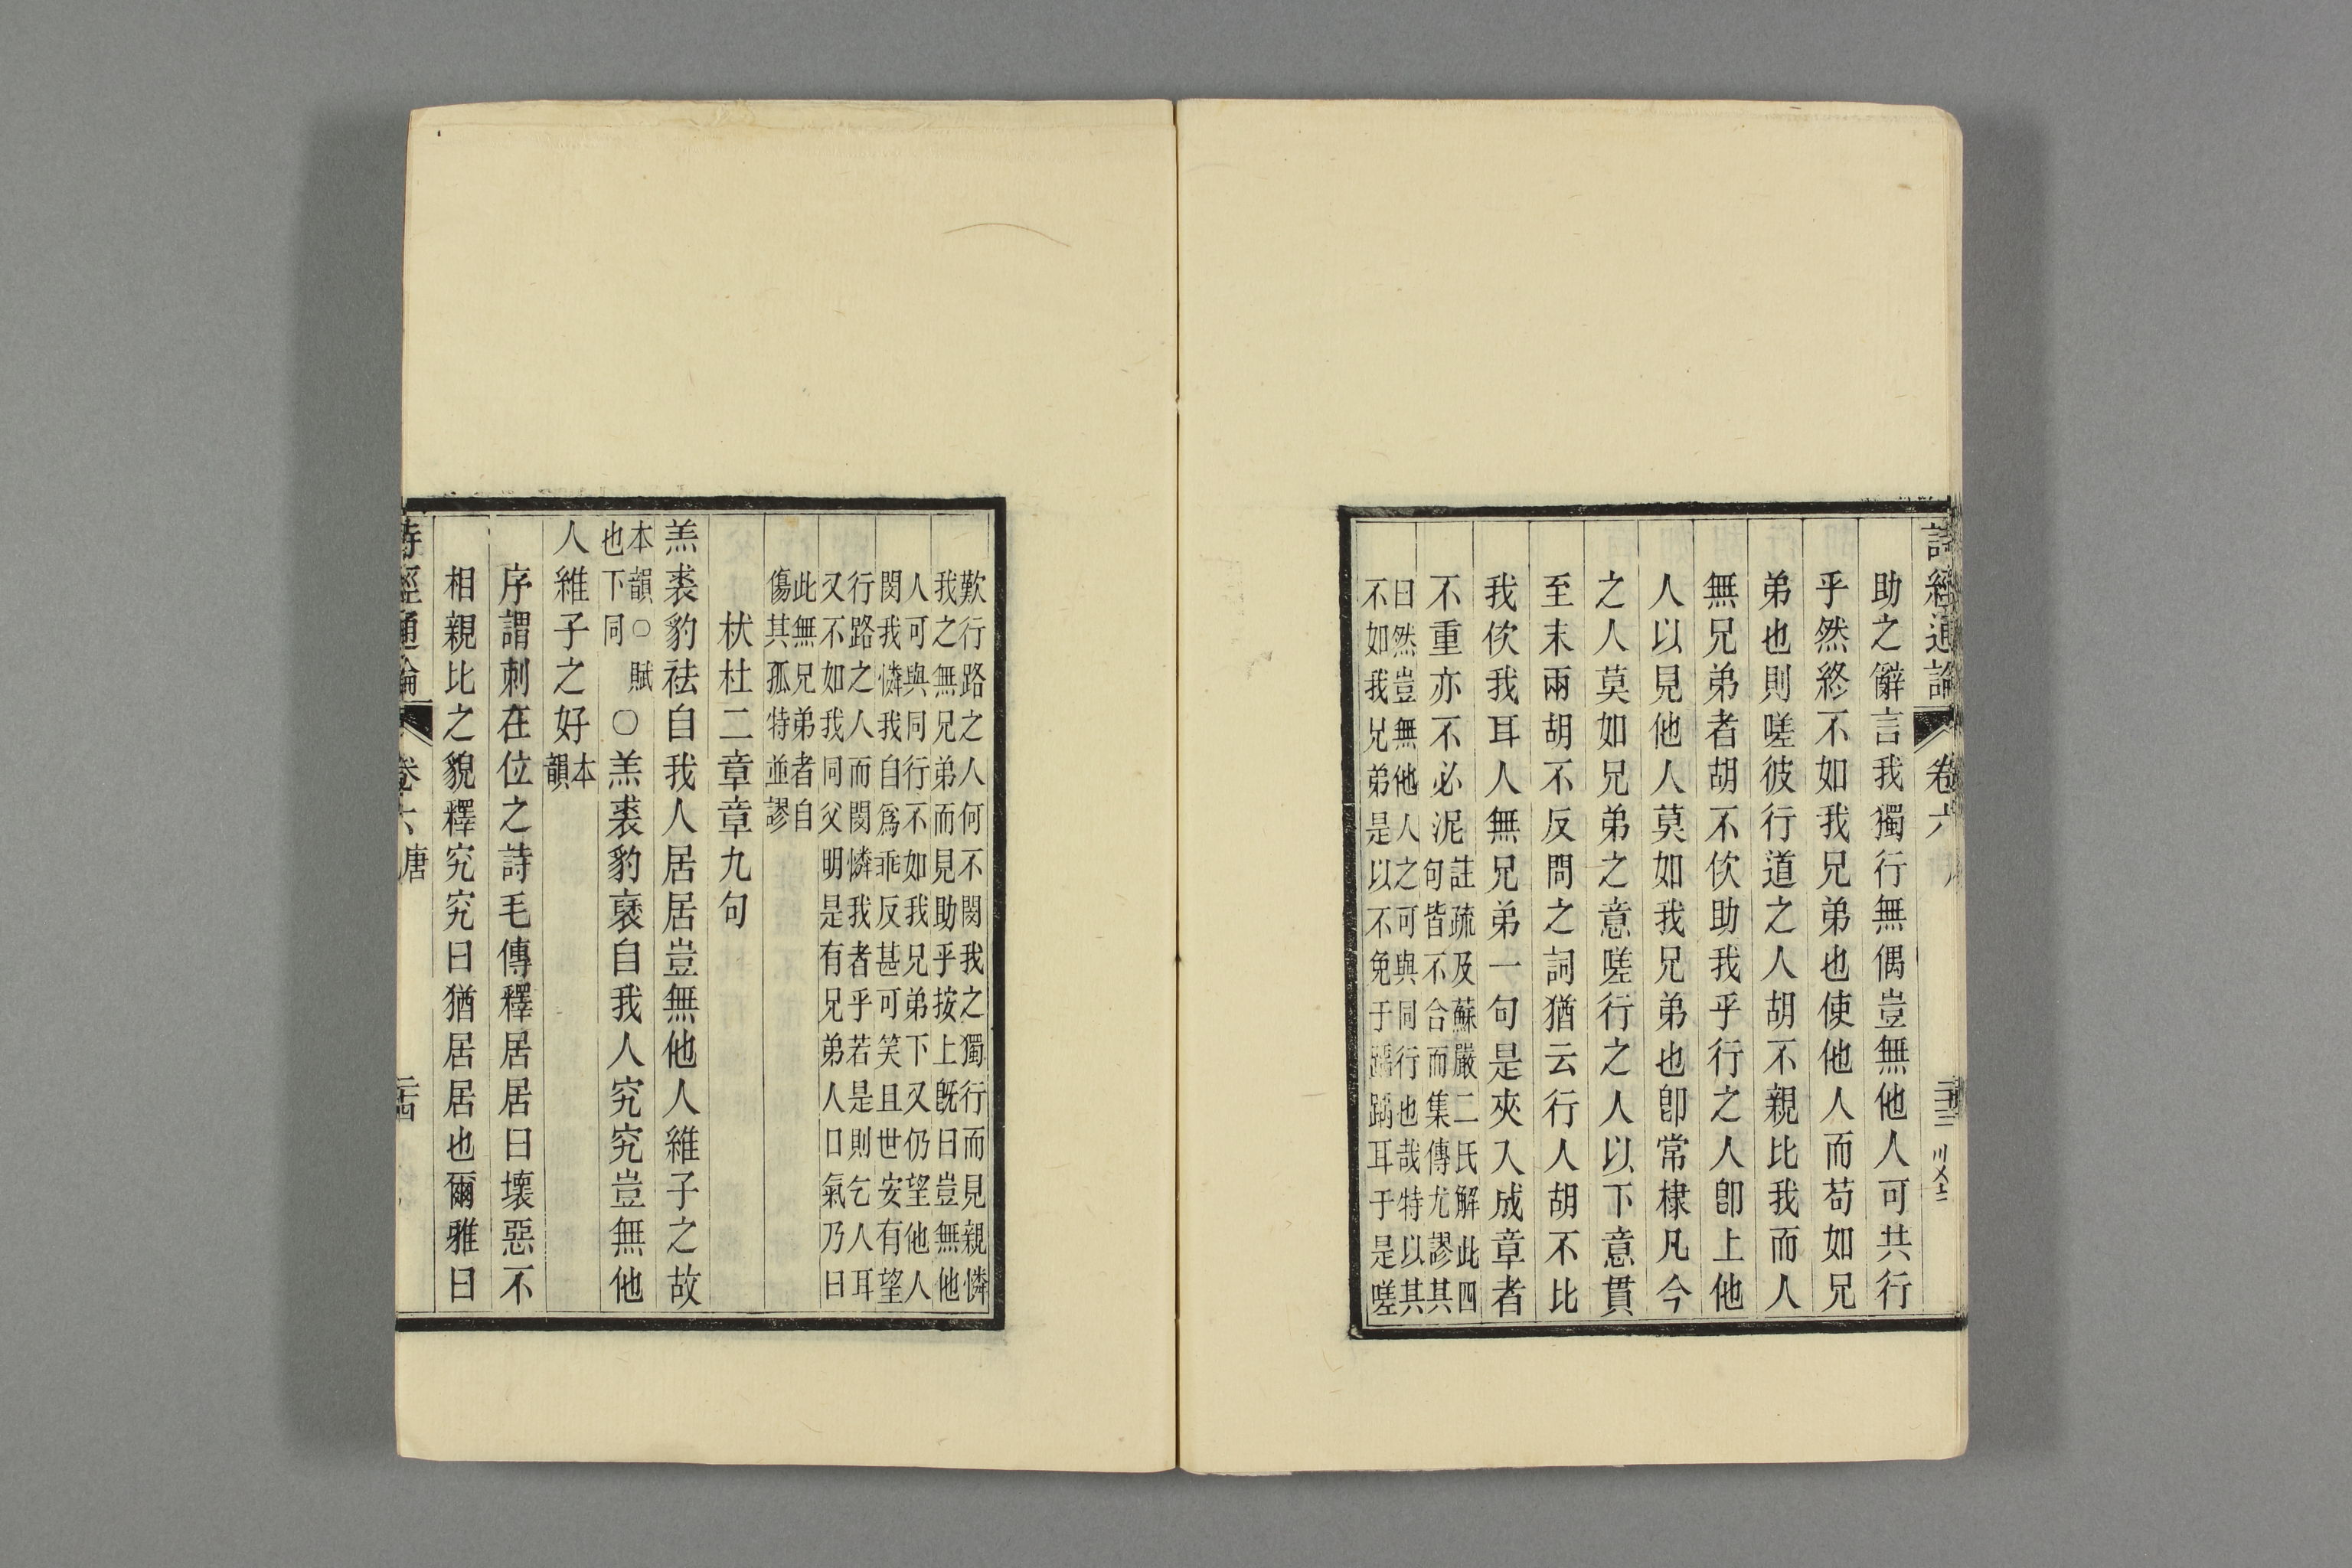 詩經通論 卷六 二十三
助之辭言我獨行無偶豈無他人可共行
乎然終不如我兄弟也使他人而苟如兄
弟也則嗟彼行道之人胡不親比我而人
無兄弟者胡不佽助我乎行之人卽上他
人以見他人莫如我兄弟也卽常棣凡今
之人莫如兄弟之意嗟行之人以下意貫
至末兩胡不反問之詞猶云行人胡不比
我佽我耳人無兄弟一句是夾入成章者
不重亦不必泥
註疏及蘇嚴二氏解此四
句皆不合而集傳尤謬其
曰然豈無他人之可與同行也哉特以其
不如我兄弟是以不免于踽踽耳于是嗟
歎行路之人何不閔我之獨行而見親憐
我之無兄弟而見助乎按上旣曰豈無他
人可與同行不如我兄弟下又仍望他人
閔我憐我自爲乖反甚可笑且世安有望
行路之人而閔憐我者乎若是則乞人耳
又不如我同父明是有兄弟人口氣乃曰
此無兄弟者自
傷其孤特並謬
杕杜二章章九句
羔裘豹祛自我人居居豈無他人維子之故
本韻○賦
也下同
○羔裘豹褎自我人究究豈無他
人維子之好
本
韻
序謂刺在位之詩毛傳釋居居曰壞惡不
相親比之貌釋究究曰猶居居也爾雅曰
詩經通論 卷六 唐 二十四